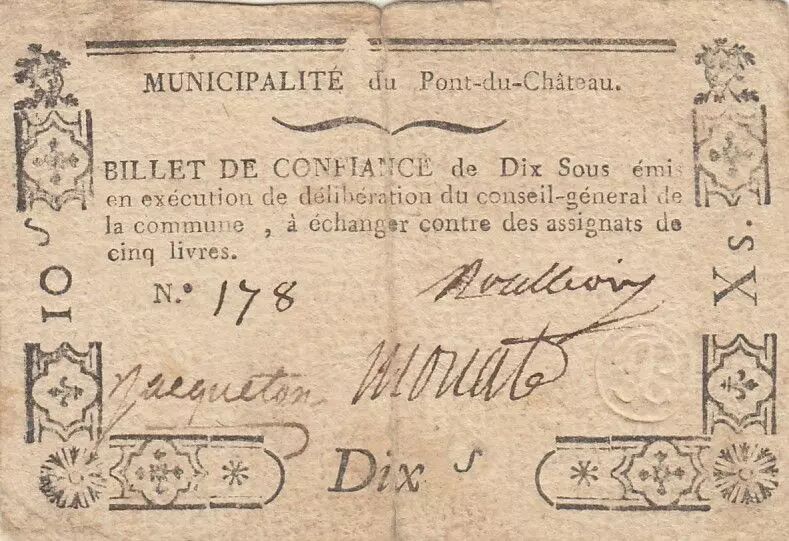 MUNICIPALITÉ du Pont-du-Château.
BILLET DE CONFIANCE de Dix Sous émis
en exécution de délibération du conseil-général de
la commune , à échanger contre des assignats de
cinq livres.
N.° 178
Jacqueton
Monat
10 s
X s.
Dix s